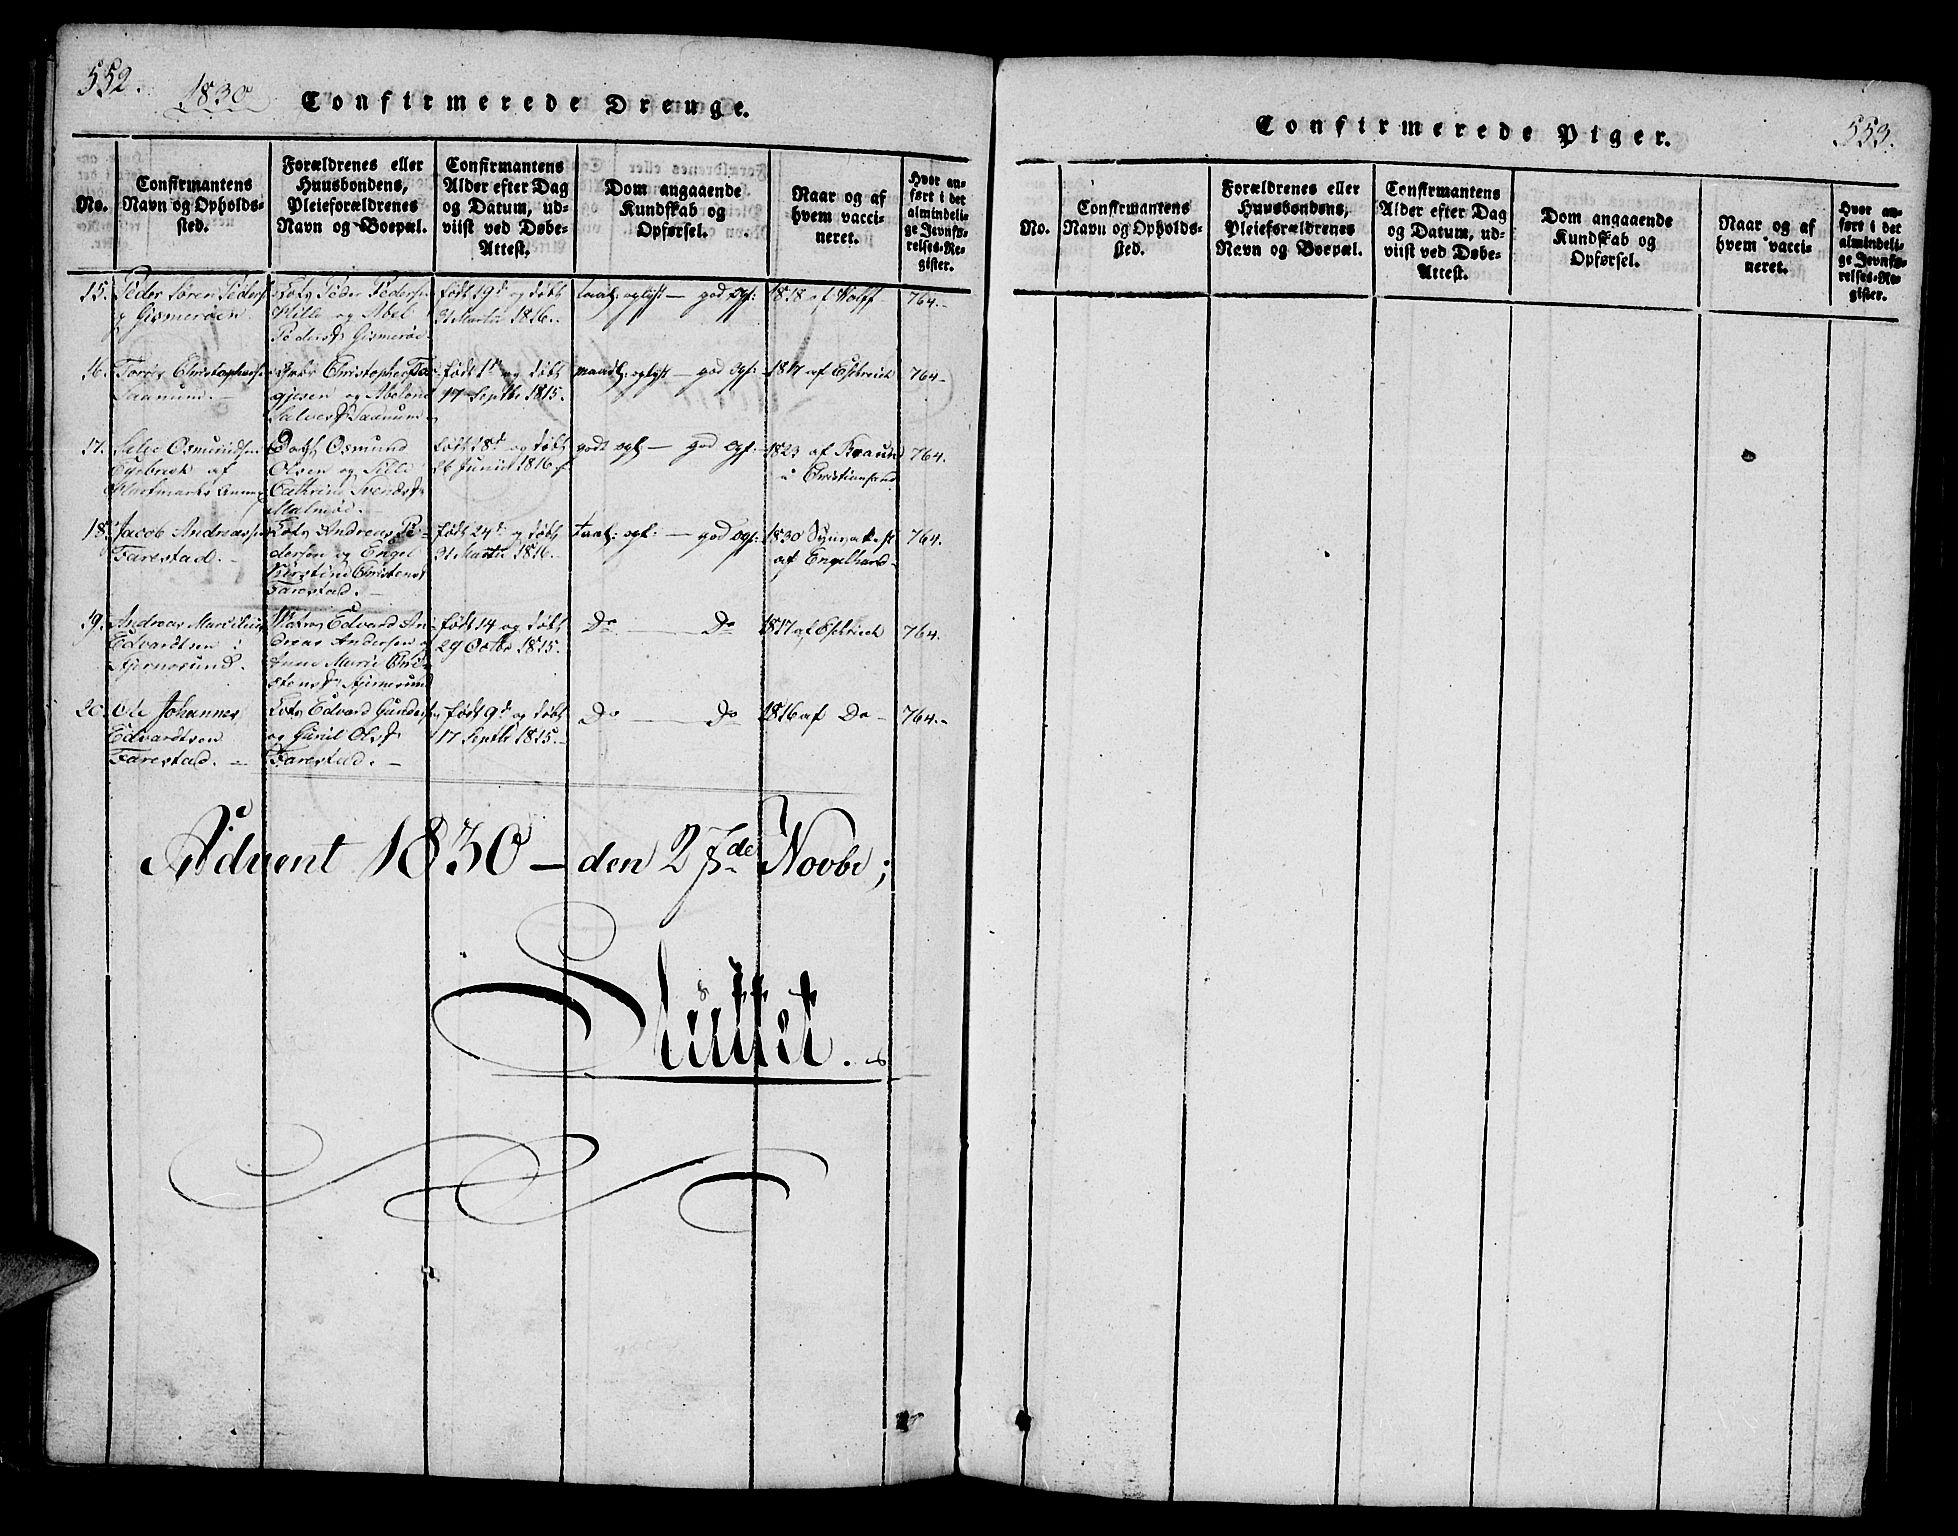 552.
1830
Confirmerede Drenge.
No.
Confirmantens
Navn og Opholds-
sted.
Forældrenes eller
Huusbondens,
Pleieforældrenes
Navn og Boepæl.
Confirmantens
Alder efter Dag
og Datum, ud-
viist ved Døbe-
Attest.
Dom angaaende
Kundskab og
Opførsel.
Naar og af
hvem vacci-
neret.
Hvor an-
ført i det
almindeli-
ge Jevnfø-
relses-Re-
gister.
15.
Peder Søren Peders
Gismerøen
Peder Peders
Hille og Abel
Peders Gismerøe
født 19d og døbt
21 Martii 1816.
god
1818 af Wolff
764.-
16.
Tarøe Christophers
Saanum.-
Christopher
og Abelone
Salves Saanum
født 1t og døbt
17 Septbr 1815.
oplyst - god
1817 af Esbrich
764-
17.
Osmundsen
af
Osmund
Olsen og Sille
Cathrine Svends
Malmøe.-
født 18d og døbt
26 Junii 1816
godt - god
1823 af
i Christiansand
764.
18.
Jacob Andreassen
Farestad.-
Andreas Pe-
dersen og Engel
Kirstine Christens
Farestad.-
født 24d og døbt
21 Martii 1816.
- god
1830
af Engelhard-
764.
19.
Andreas
Edvardtsen
Edvard An-
dreas Andersen
Anne Marie Chri-
stens
født 14 og døbt
29 Octbr 1815.
Do - Do
1817 af Esbrich
764.
20.
Ole Johannes
Edvardtsen
Farestad.-
Edvard Gunders
og Guril Ols
Farestad.-
født 9d og døbt
17 Septbr 1815.-
Do - Do
1816 af Do-
764.-
Advent 1830 - den 27de Novbr;
Sluttet.
553.
Confirmerede Piger.
No.
Confirmantens
Navn og Opholds-
sted.
Forældrenes eller
Huusbondens,
Pleieforældrenes
Navn og Boepæl.
Confirmantens
Alder efter Dag
og Datum, ud-
viist ved Døbe-
Attest.
Dom angaaende
Kundskab og
Opførsel.
Naar og af
hvem vacci-
neret.
Hvor an-
ført i det
almindeli-
ge Jevnfø-
relses-Re-
gister.